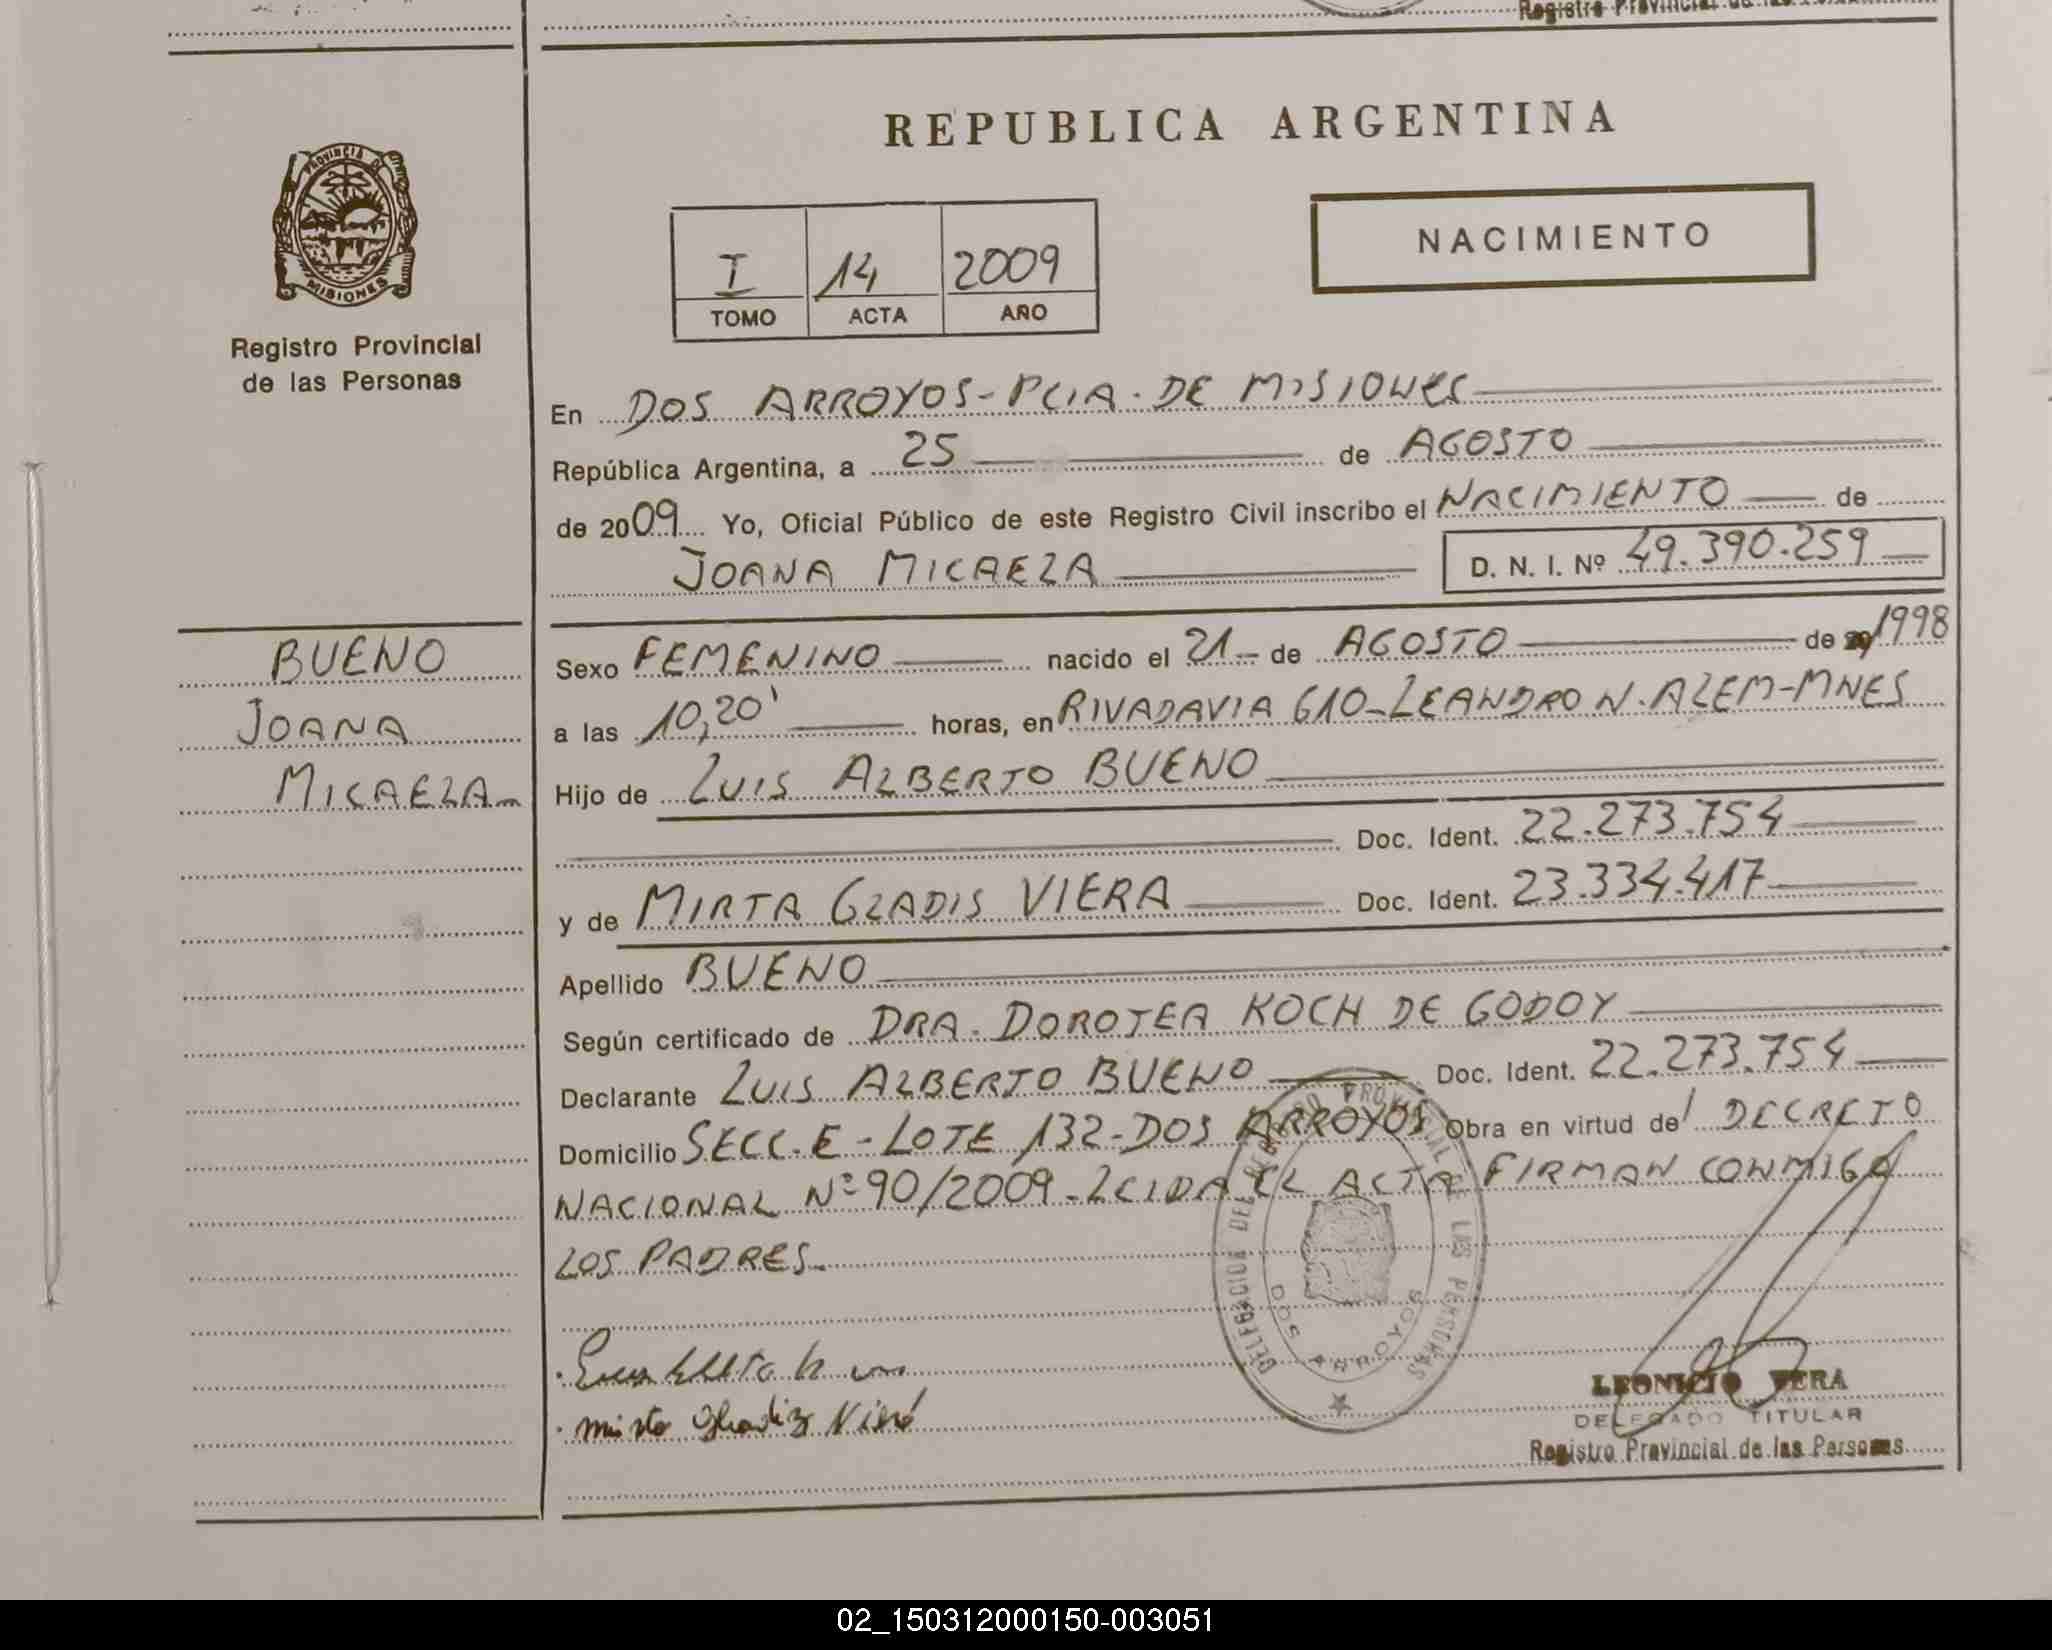 Registro Provincial de las
REPUBLICA ARGENTINA
PROVINCIA DE
MISIONES
NACIMIENTO
I 14 2009
TOMO ACTA AÑO
Registro Provincial
de las Personas
En DOS ARROYOS-PCIA. DE MISIONES
República Argentina, a 25 de AGOSTO
de 2009 Yo, Oficial Público de este Registro Civil inscribo el NACIMIENTO de
JOANA MICAELA D. N. I. Nº 49.390.259
BUENO
JOANA
MICAELA
Sexo FEMENINO nacido el 21 de AGOSTO de 1998
a las 10,20' horas, en RIVADAVIA 610-LEANDRO N. ALEM-MNES
Hijo de LUIS ALBERTO BUENO
Doc. Ident. 22.273.754
y de MIRTA GLADIS VIERA Doc. Ident. 23.334.417
Apellido BUENO
Según certificado de DRA. DOROTEA KOCH DE GODOY
Declarante LUIS ALBERTO BUENO Doc. Ident. 22.273.754
Domicilio SECC. E - LOTE 132-DOS ARROYOS Obra en virtud de DECRETO
NACIONAL Nº 90/2009-LEIDA EL ACTA FIRMAN CONMIGO
LOS PADRES.
DELEGACION DEL REGISTRO PROVINCIAL DE LAS PERSONAS
DOS ARROYOS
LEONICIO VERA
DELEGADO TITULAR
Registro Provincial de las Personas
02_150312000150-003051